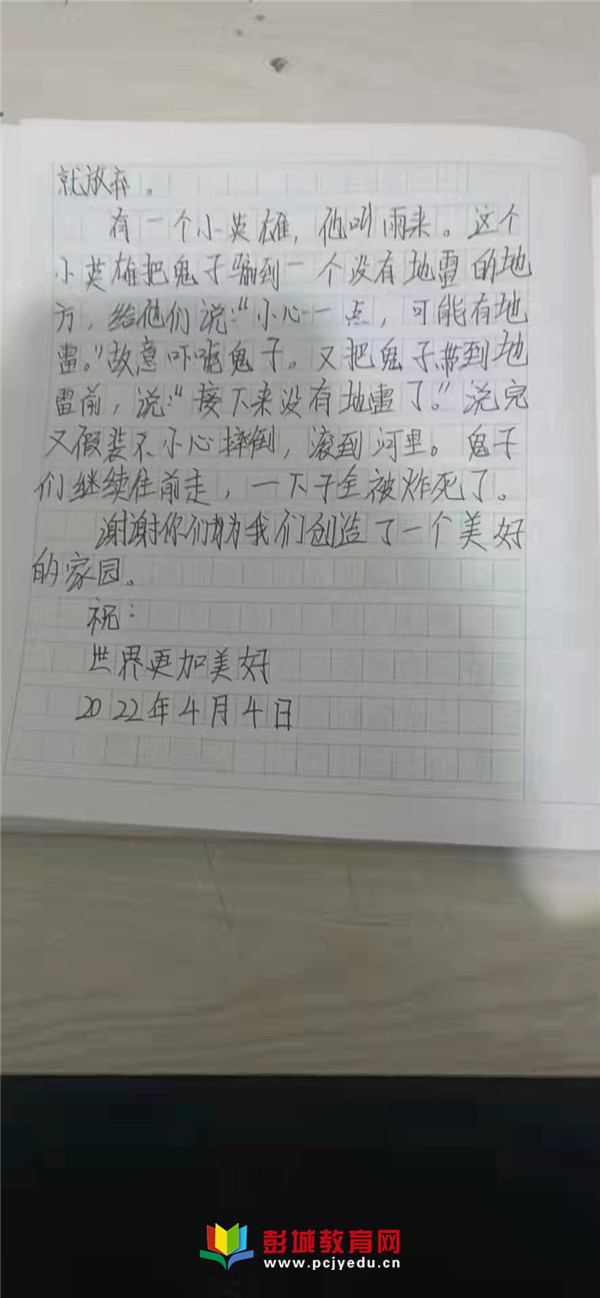 就放弃。
有一个小英雄，他叫雨来。这个
小英雄把鬼子骗到一个没有地雷的地
方，给他们说：“小心一点，可能有地
雷。”故意吓唬鬼子。又把鬼子带到地
雷前，说：“接下来没有地雷了。”说完
又假装不小心摔倒，滚到河里。鬼子
们继续往前走，一下子全被炸死了。
谢谢你们为我们创造了一个美好
的家园。
祝：
世界更加美好
2022年4月4日
彭城教育网
www.pcjyedu.cn